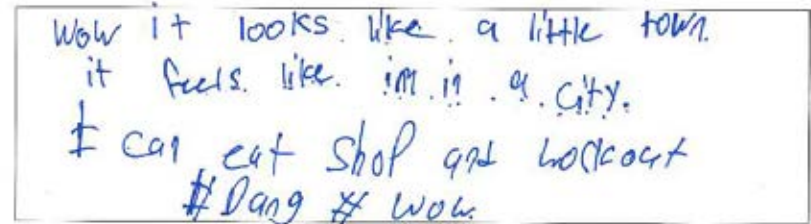 Wow it looks like a little town.
it feels like im in a city.
I can eat shop and workout
#Dang # wow